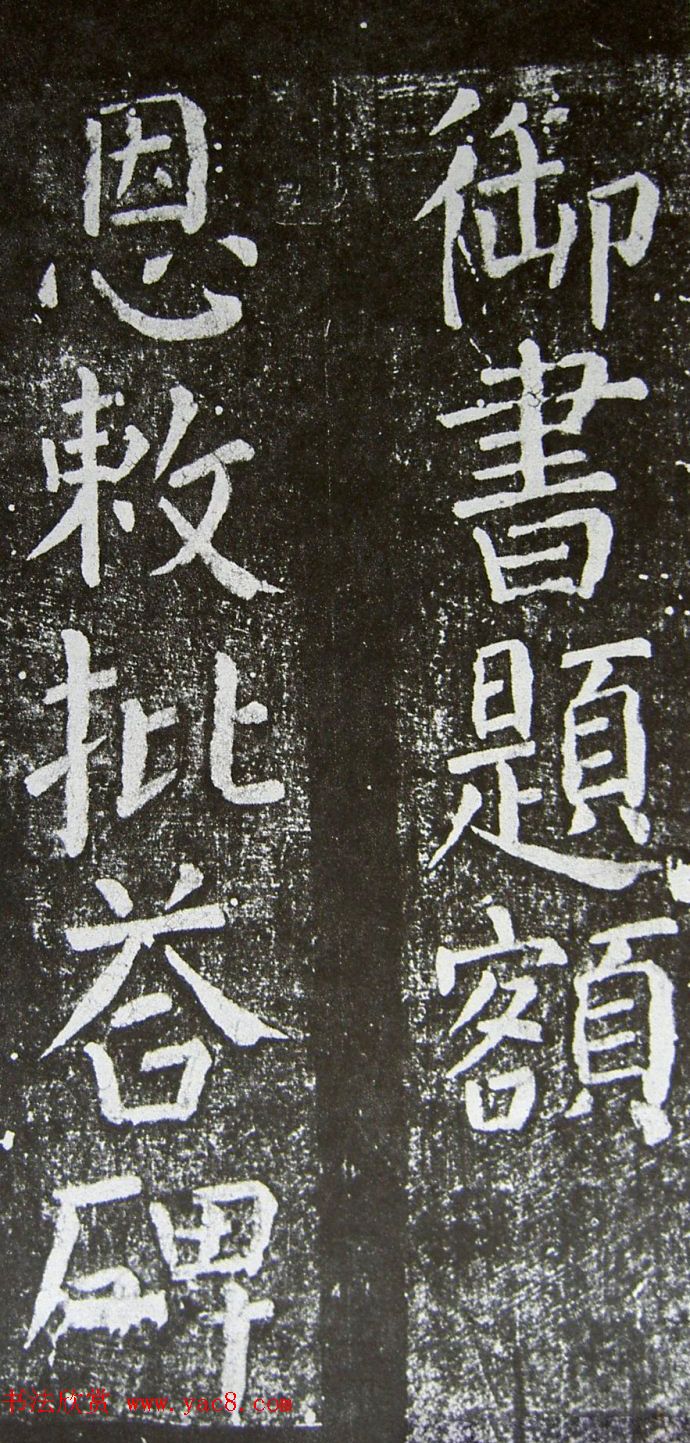 御書題額
恩敕批荅碑
书法欣赏 www.yac8.com